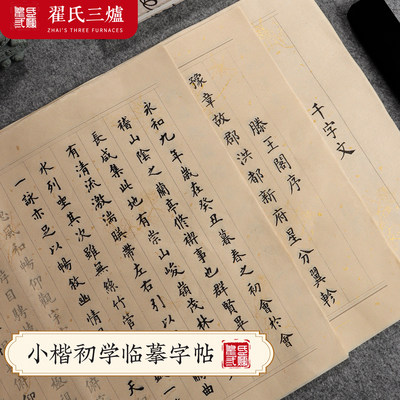 翟氏三爐
ZHAI'S THREE FURNACES
千字文
滕王閣序
豫章故郡洪都新府星分翼軫
永和九年歲在癸丑暮春之初會於會
稽山陰之蘭亭修禊事也群賢畢
長咸集此地有崇山峻嶺茂林
有清流激湍暎帶左右引以
曲
水列坐其次雖無絲竹管
一
一詠亦足以暢敘幽情
天
風和暢仰觀宇
小楷初学临摹字帖